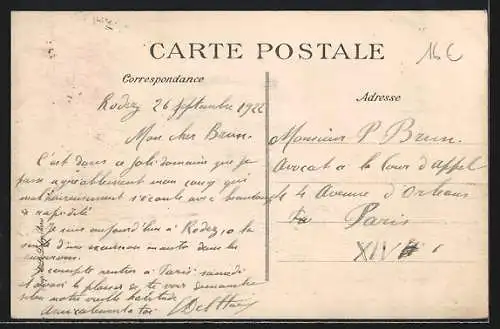 CARTE POSTALE
16€
Correspondance
Adresse
Rodez 26 septembre 1922
Mon cher Brun,
C'est dans ce joli domaine que je
passe agréablement mon congé qui
malheureusement s'écoule avec beaucoup
de rapidité
Je suis aujourd'hui à Rodez, à la
suite d'une excursion en auto dans les
environs.
Je compte rentrer à Paris samedi
et avoir le plaisir de te voir dimanche
selon notre vieille habitude
Amicalement à toi
Monsieur P Brun.
Avocat à la Cour d'appel
4 Avenue d'Orléans
Paris
XIV